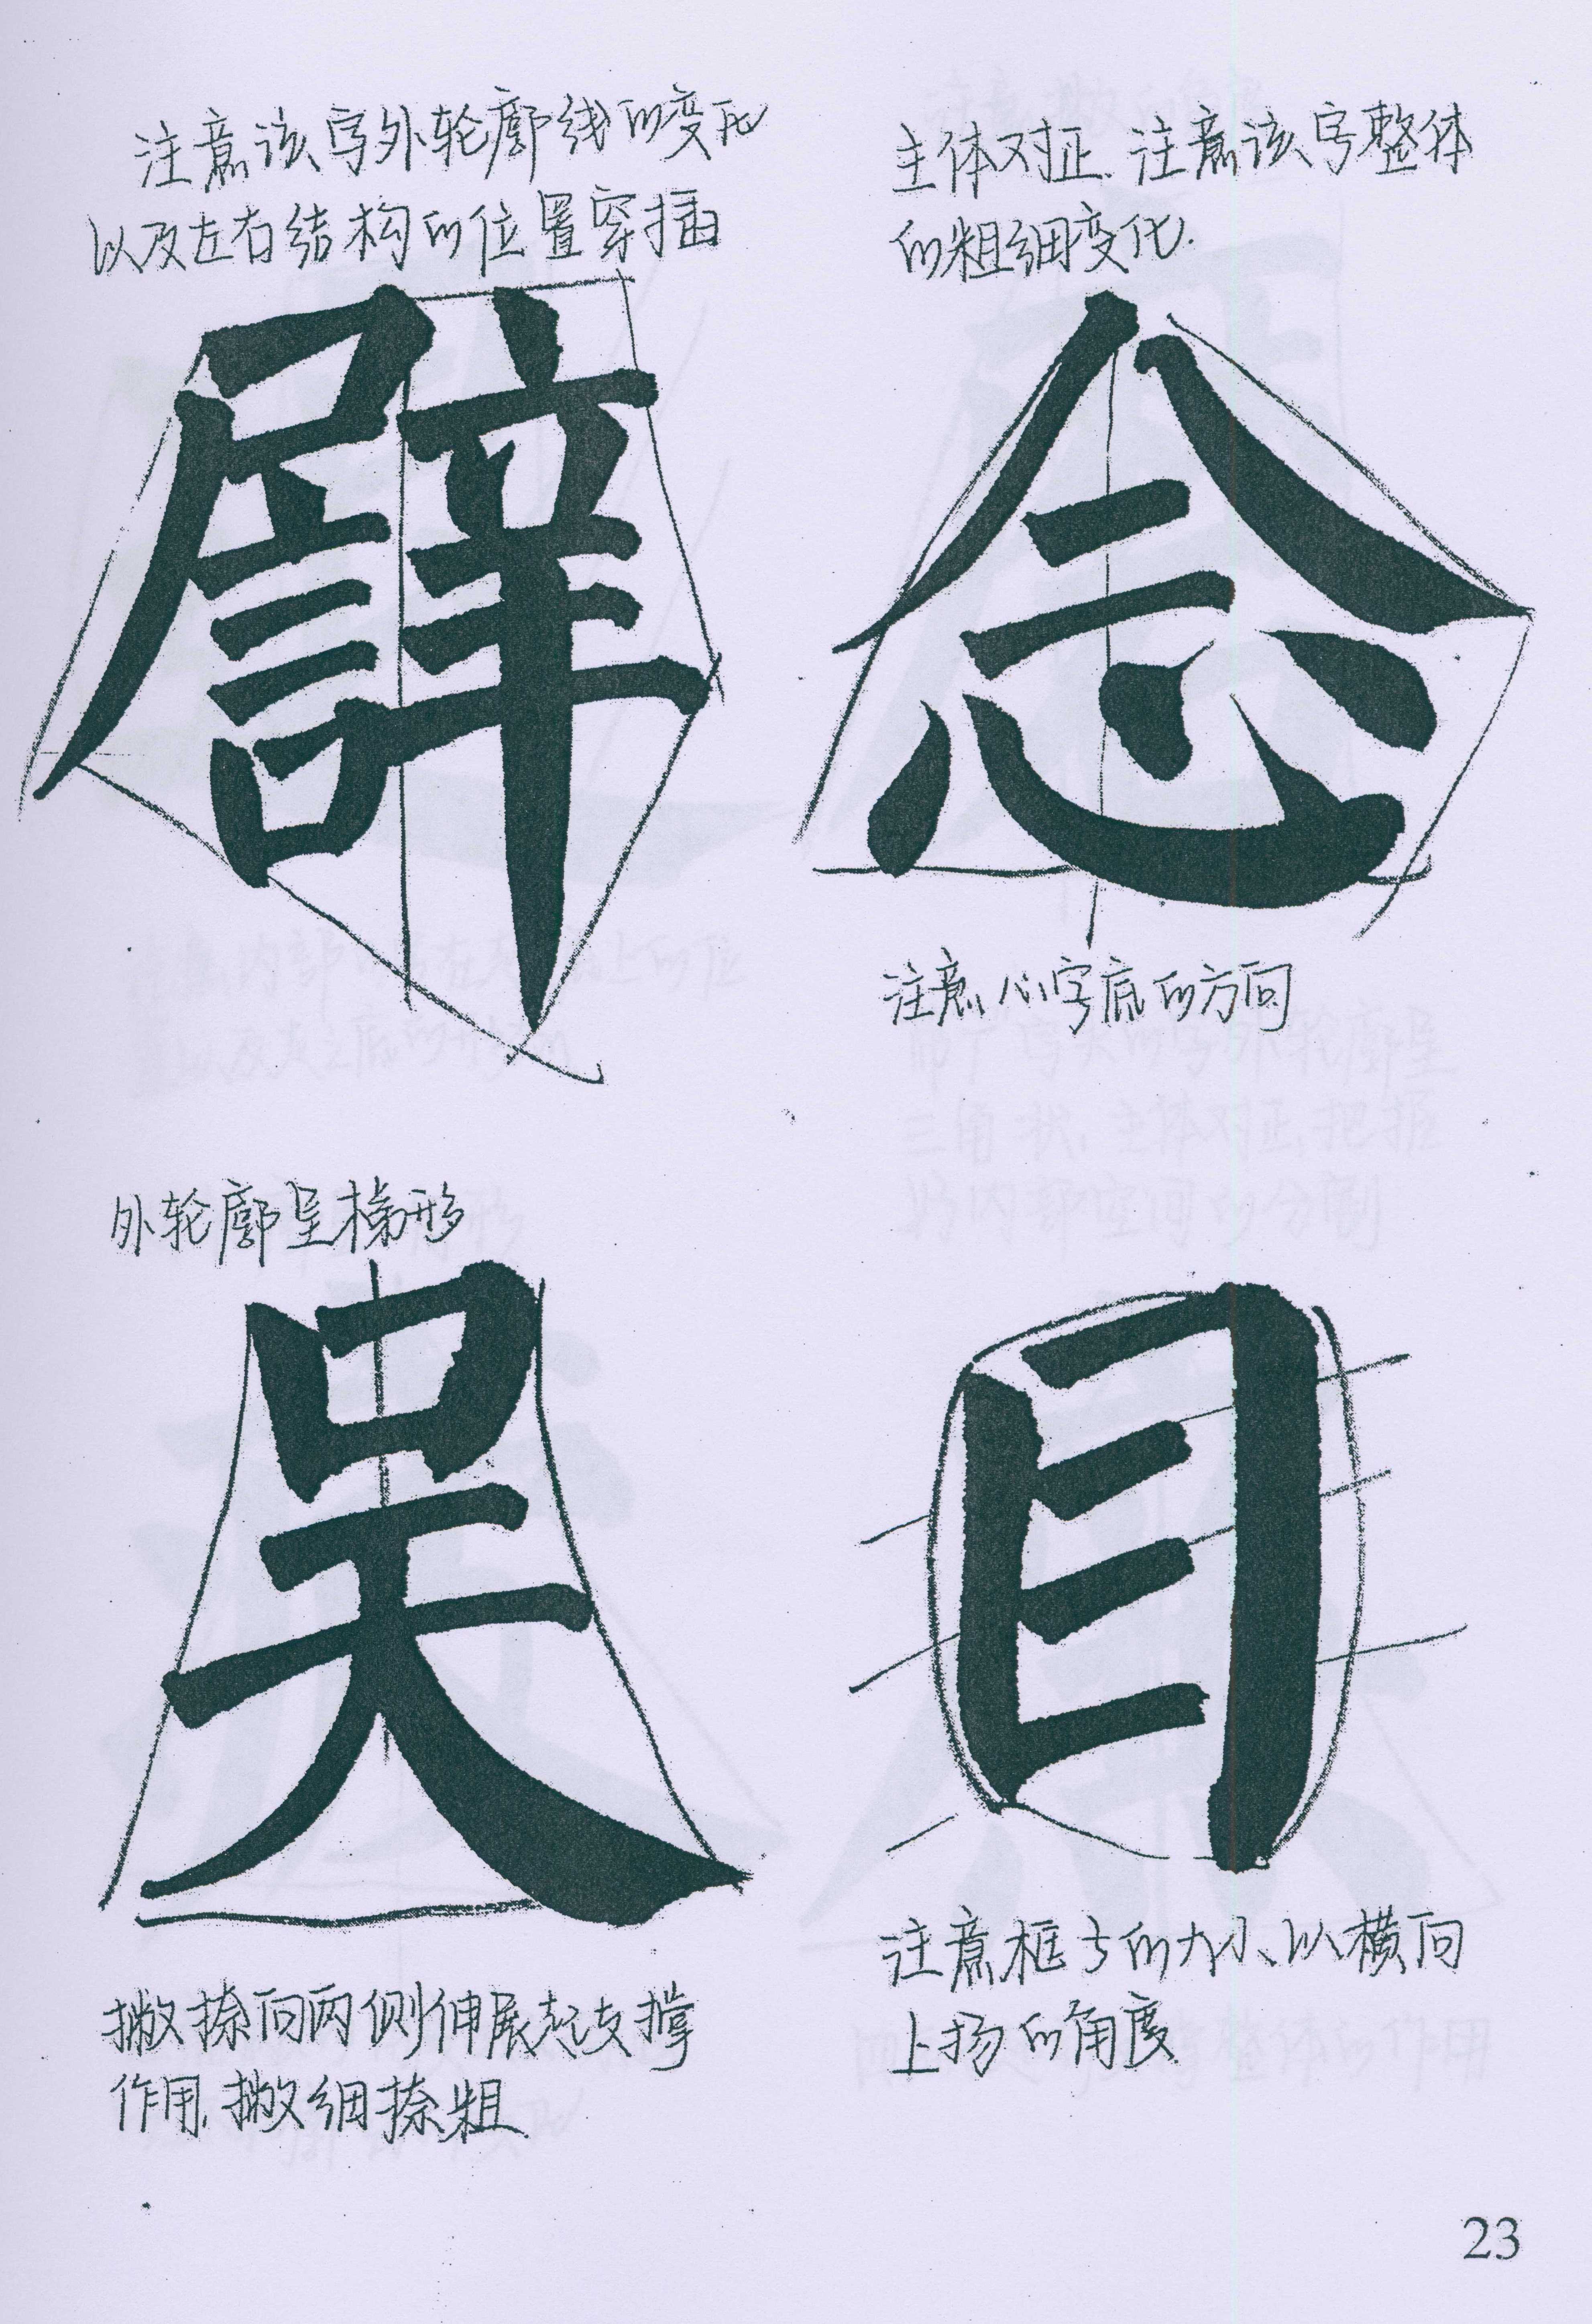 注意该字外轮廓线的变化
以及左右结构的位置穿插
主体对正.注意该字整体
的粗细变化.
念
注意心字底的方向
外轮廓呈梯形
吴
撇捺向两侧伸展起支撑
作用,撇细捺粗
目
注意框子的大小、以横向
上扬的角度
23